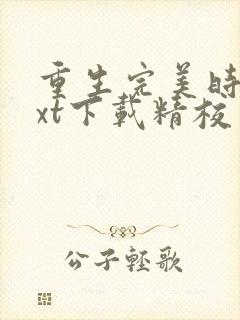 重生完美时
xt下载精校
公子轻歌